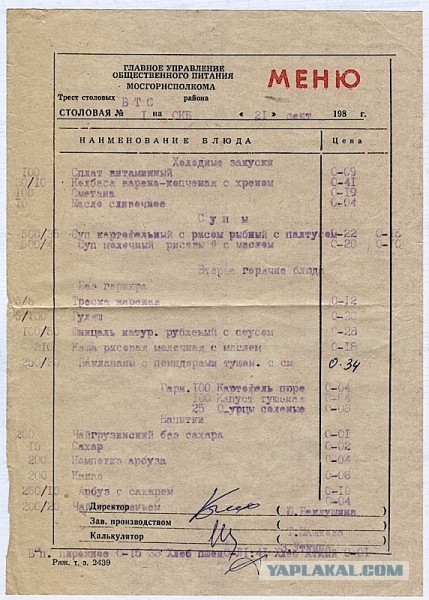 ГЛАВНОЕ УПРАВЛЕНИЕ
ОБЩЕСТВЕННОГО ПИТАНИЯ
МОСГОРИСПОЛКОМА
МЕНЮ
Трест столовых БТС района
СТОЛОВАЯ № 1 на СКБ « 21 » сент 198 г.
НАИМЕНОВАНИЕ БЛЮДА Цена
Холодные закуски
100 Салат витаминный 0-09
/10 Колбаса варено-копченая с хреном 0-41
Сметана 0-19
10 Масло сливочное 0-04
Супы
Суп картофельный с рисом рыбный с палтусом 0-22
Суп молочный рисовый с маслом 0-20
Вторые горячие блюда
Без гарнира
Треска жареная 0-12
/100 Гуляш
Шницель натур. рубленый с соусом 0-28
210 Каша рисовая молочная с маслом 0-18
Баклажаны с помидорами тушен. с см 0-34
Гарн. 100 Картофель пюре 0-04
100 Капуст тушеная 0-04
25 Огурцы соленые
Напитки
200 Чай грузинский без сахара 0-01
15 Сахар 0-02
200 Компот из арбуза 0-04
200 Какао 0-08
250/10 Арбуз с сахаром 0-10
200/20 Чай 0-04
Директор
Зав. производством
Калькулятор
Пирожное 0-15 Хлеб Хлеб 0-01
Ряж. т. з. 2439
YAPLAKAL.COM